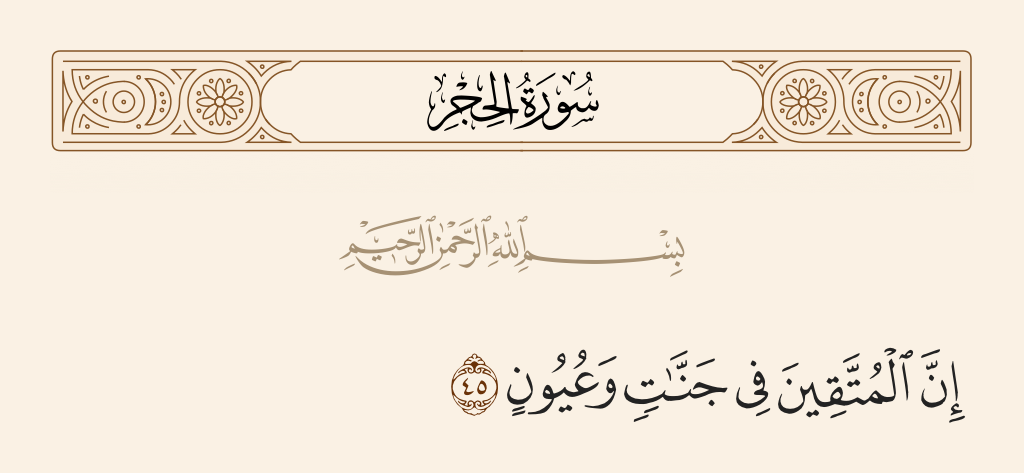 سُورَةُ الحِجْرِ
بِسْمِ ٱللَّهِ ٱلرَّحْمَٰنِ ٱلرَّحِيمِ
إِنَّ ٱلْمُتَّقِينَ فِى جَنَّـٰتٍ وَعُيُونٍ ٤٥